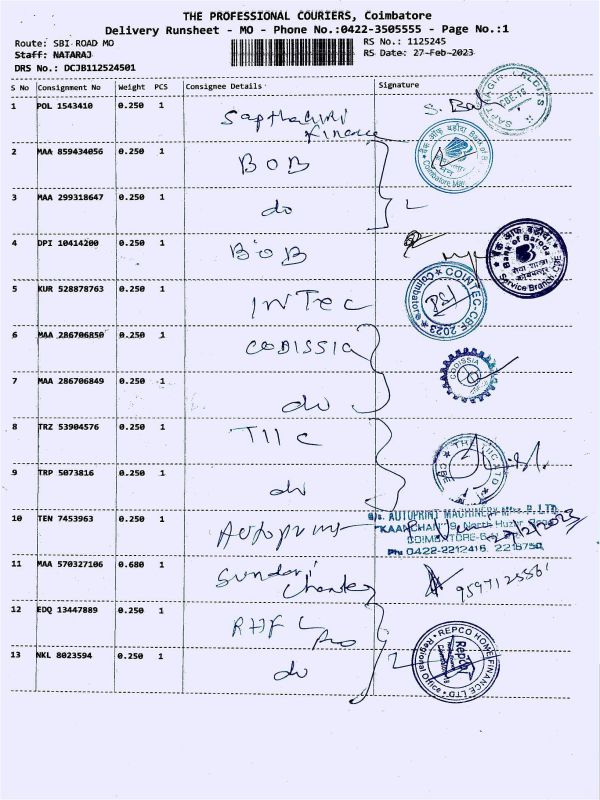 THE PROFESSIONAL COURIERS, Coimbatore
Delivery Runsheet - MO - Phone No.:0422-3505555 - Page No.:1
Route: SBI ROAD MO
RS No.: 1125245
Staff: NATARAJ
RS Date: 27-Feb-2023
DRS No.: DCJB112524501
S No Consignment No Weight PCS Consignee Details Signature
1 POL 1543410 0.250 1 Sapthagiri
finance
2 MAA 859434056 0.250 1 BOB
3 MAA 299318647 0.250 1 do
4 DPI 10414200 0.250 1 BOB
5 KUR 528878763 0.250 1 INTEC
6 MAA 286706850 0.250 1 CODISSIA
7 MAA 286706849 0.250 1 do
8 TRZ 53904576 0.250 1 TIIC
9 TRP 5073816 0.250 1 do
10 TEN 7453963 0.250 1 Autoprint
11 MAA 570327106 0.680 1 Sundari
12 EDQ 13447889 0.250 1 RHFL
13 NKL 8023594 0.250 1 do
बैंक ऑफ़ बड़ौदा Bank of
Coimbatore
Bank of Baroda
Service Branch, CBE
COINTEC-CBF 2023
Coimbatore
CODISSIA
CBE
AUTOPRINT MACHINERY
"KAANCHAN" 9, North Huzur
COIMBATORE-6
Ph: 0422-2212415, 2216750
27/2/2023
REPCO HOME FINANCE LTD
Regional Office
Repco